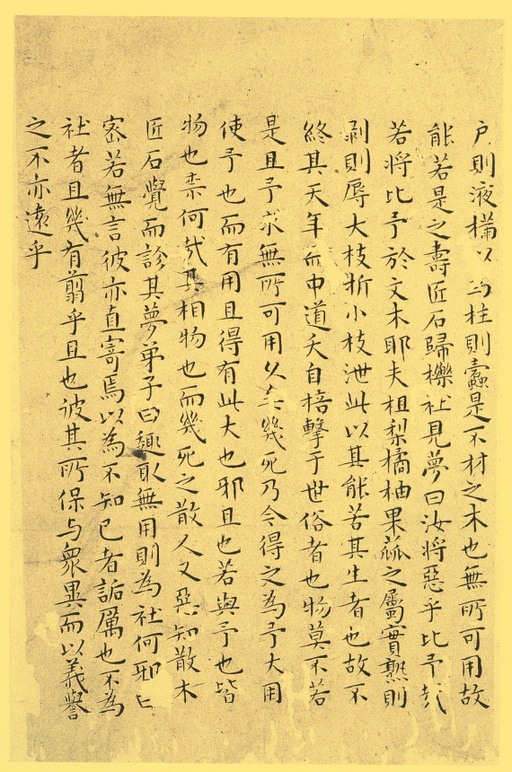 户則液樠以為柱則蠹是不材之木也無所可用故
能若是之壽匠石歸櫟社見夢曰汝將惡乎比予哉
若將比予於文木耶夫柤梨橘柚果蓏之屬實熟則
剥則辱大枝折小枝泄此以其能苦其生者也故不
終其天年而中道夭自掊擊于世俗者也物莫不若
是且予求無所可用久矣幾死乃今得之為予大用
使予也而有用且得有此大也邪且也若與予也皆
物也柰何哉其相物也而幾死之散人又惡知散木
匠石覺而診其夢弟子曰趣取無用則為社何邪曰
密若無言彼亦直寄焉以為不知己者詬厲也不為
社者且幾有翦乎且也彼其所保与衆異而以義譽
之不亦遠乎